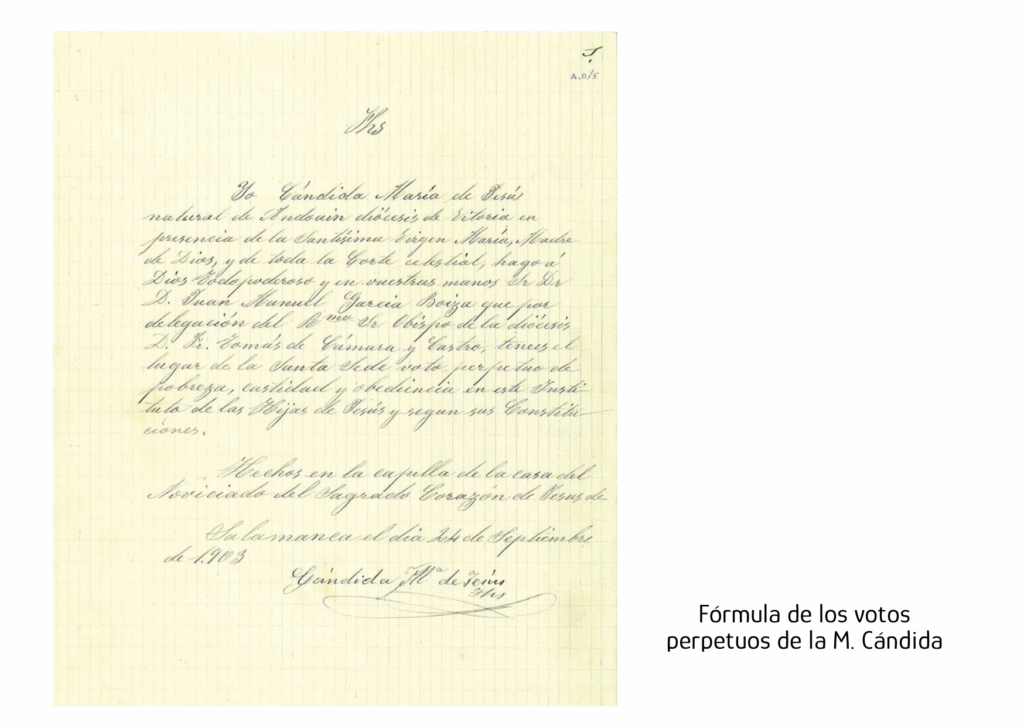 J.
A.O/5
Jhs
Yo Cándida María de Jesús
natural de Andoain diócesis de Vitoria en
presencia de la Santísima Virgen María, Madre
de Dios, y de toda la Corte celestial, hago á
Dios Todopoderoso y en vuestras manos Sr Dr
D. Juan Manuel García Boiza que por
delegación del Rmo Sr Obispo de la diócesis
D. Fr. Tomás de Cámara y Castro, teneis el
lugar de la Santa Sede voto perpetuo de
pobreza, castidad y obediencia en este Insti-
tuto de las Hijas de Jesús y segun sus Constitu-
ciones.
Hechos en la capilla de la casa del
Noviciado del Sagrado Corazón de Jesus de
Salamanca el dia 24 de Septiembre
de 1.903
Cándida Mª de Jesús
Jhs
Fórmula de los votos
perpetuos de la M. Cándida